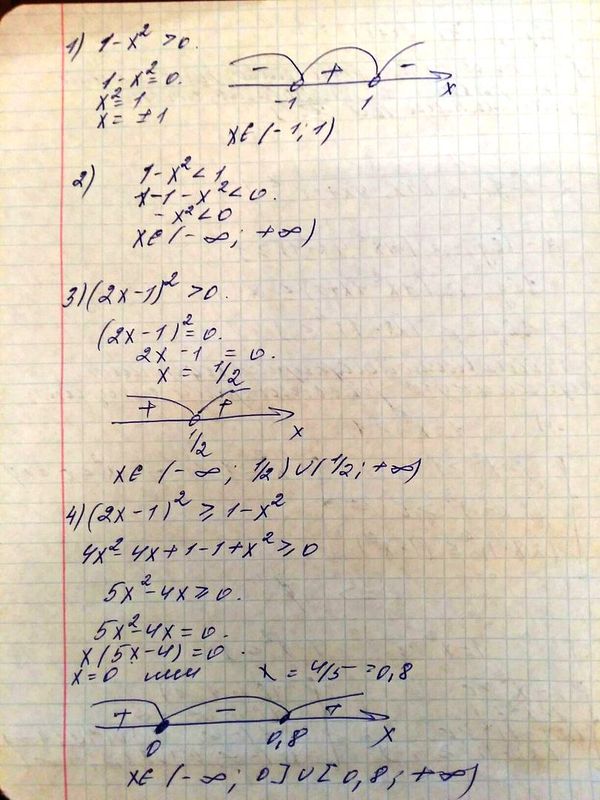 1) 1-x² > 0.
1-x² = 0.
x² = 1
x = ±1
- + -
-1 1 x
x∈(-1; 1)
2) 1-x² < 1
1-1-x² < 0.
-x² < 0
x∈(-∞; +∞)
3) (2x-1)² > 0.
(2x-1)² = 0.
2x-1 = 0.
x = 1/2
+ +
1/2 x
x∈ (-∞; 1/2)∪(1/2; +∞)
4) (2x-1)² ≥ 1-x²
4x²-4x+1-1+x² ≥ 0
5x²-4x ≥ 0.
5x²-4x = 0.
x(5x-4) = 0.
x=0 или x = 4/5 = 0,8
+ - +
0 0,8 x
x∈ (-∞; 0]∪[0,8; +∞)